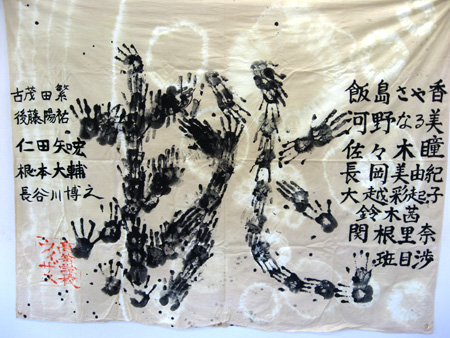 古茂田繁
後藤陽祐
仁田知宏
根本大輔
長谷川博之
飯島さや香
河野なる美
佐々木瞳
長岡美由紀
大越彩起子
鈴木茜
関根里奈
班目渉